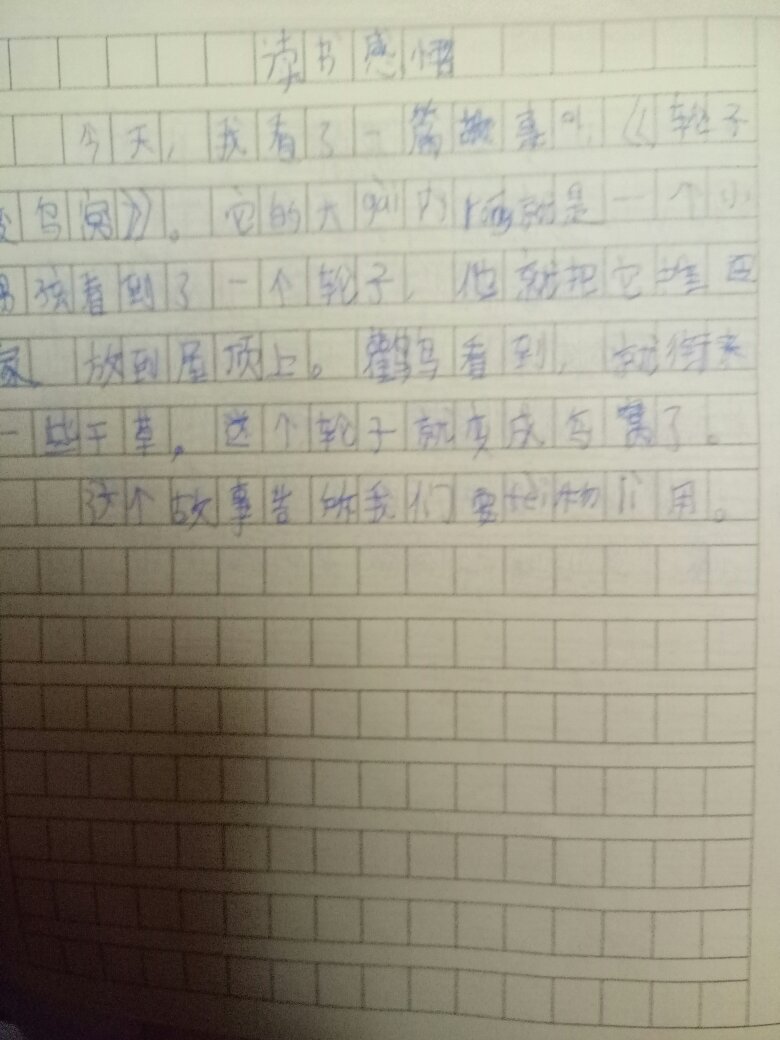 读书感悟
今天，我看了一篇故事叫《轮子
变鸟窝》。它的大gài内róng就是一个小
男孩看到了一个轮子，他就把它推回
家，放到屋顶上。鹳鸟看到，就衔来
一些干草，这个轮子就变成鸟窝了。
这个故事告诉我们要 物 用。